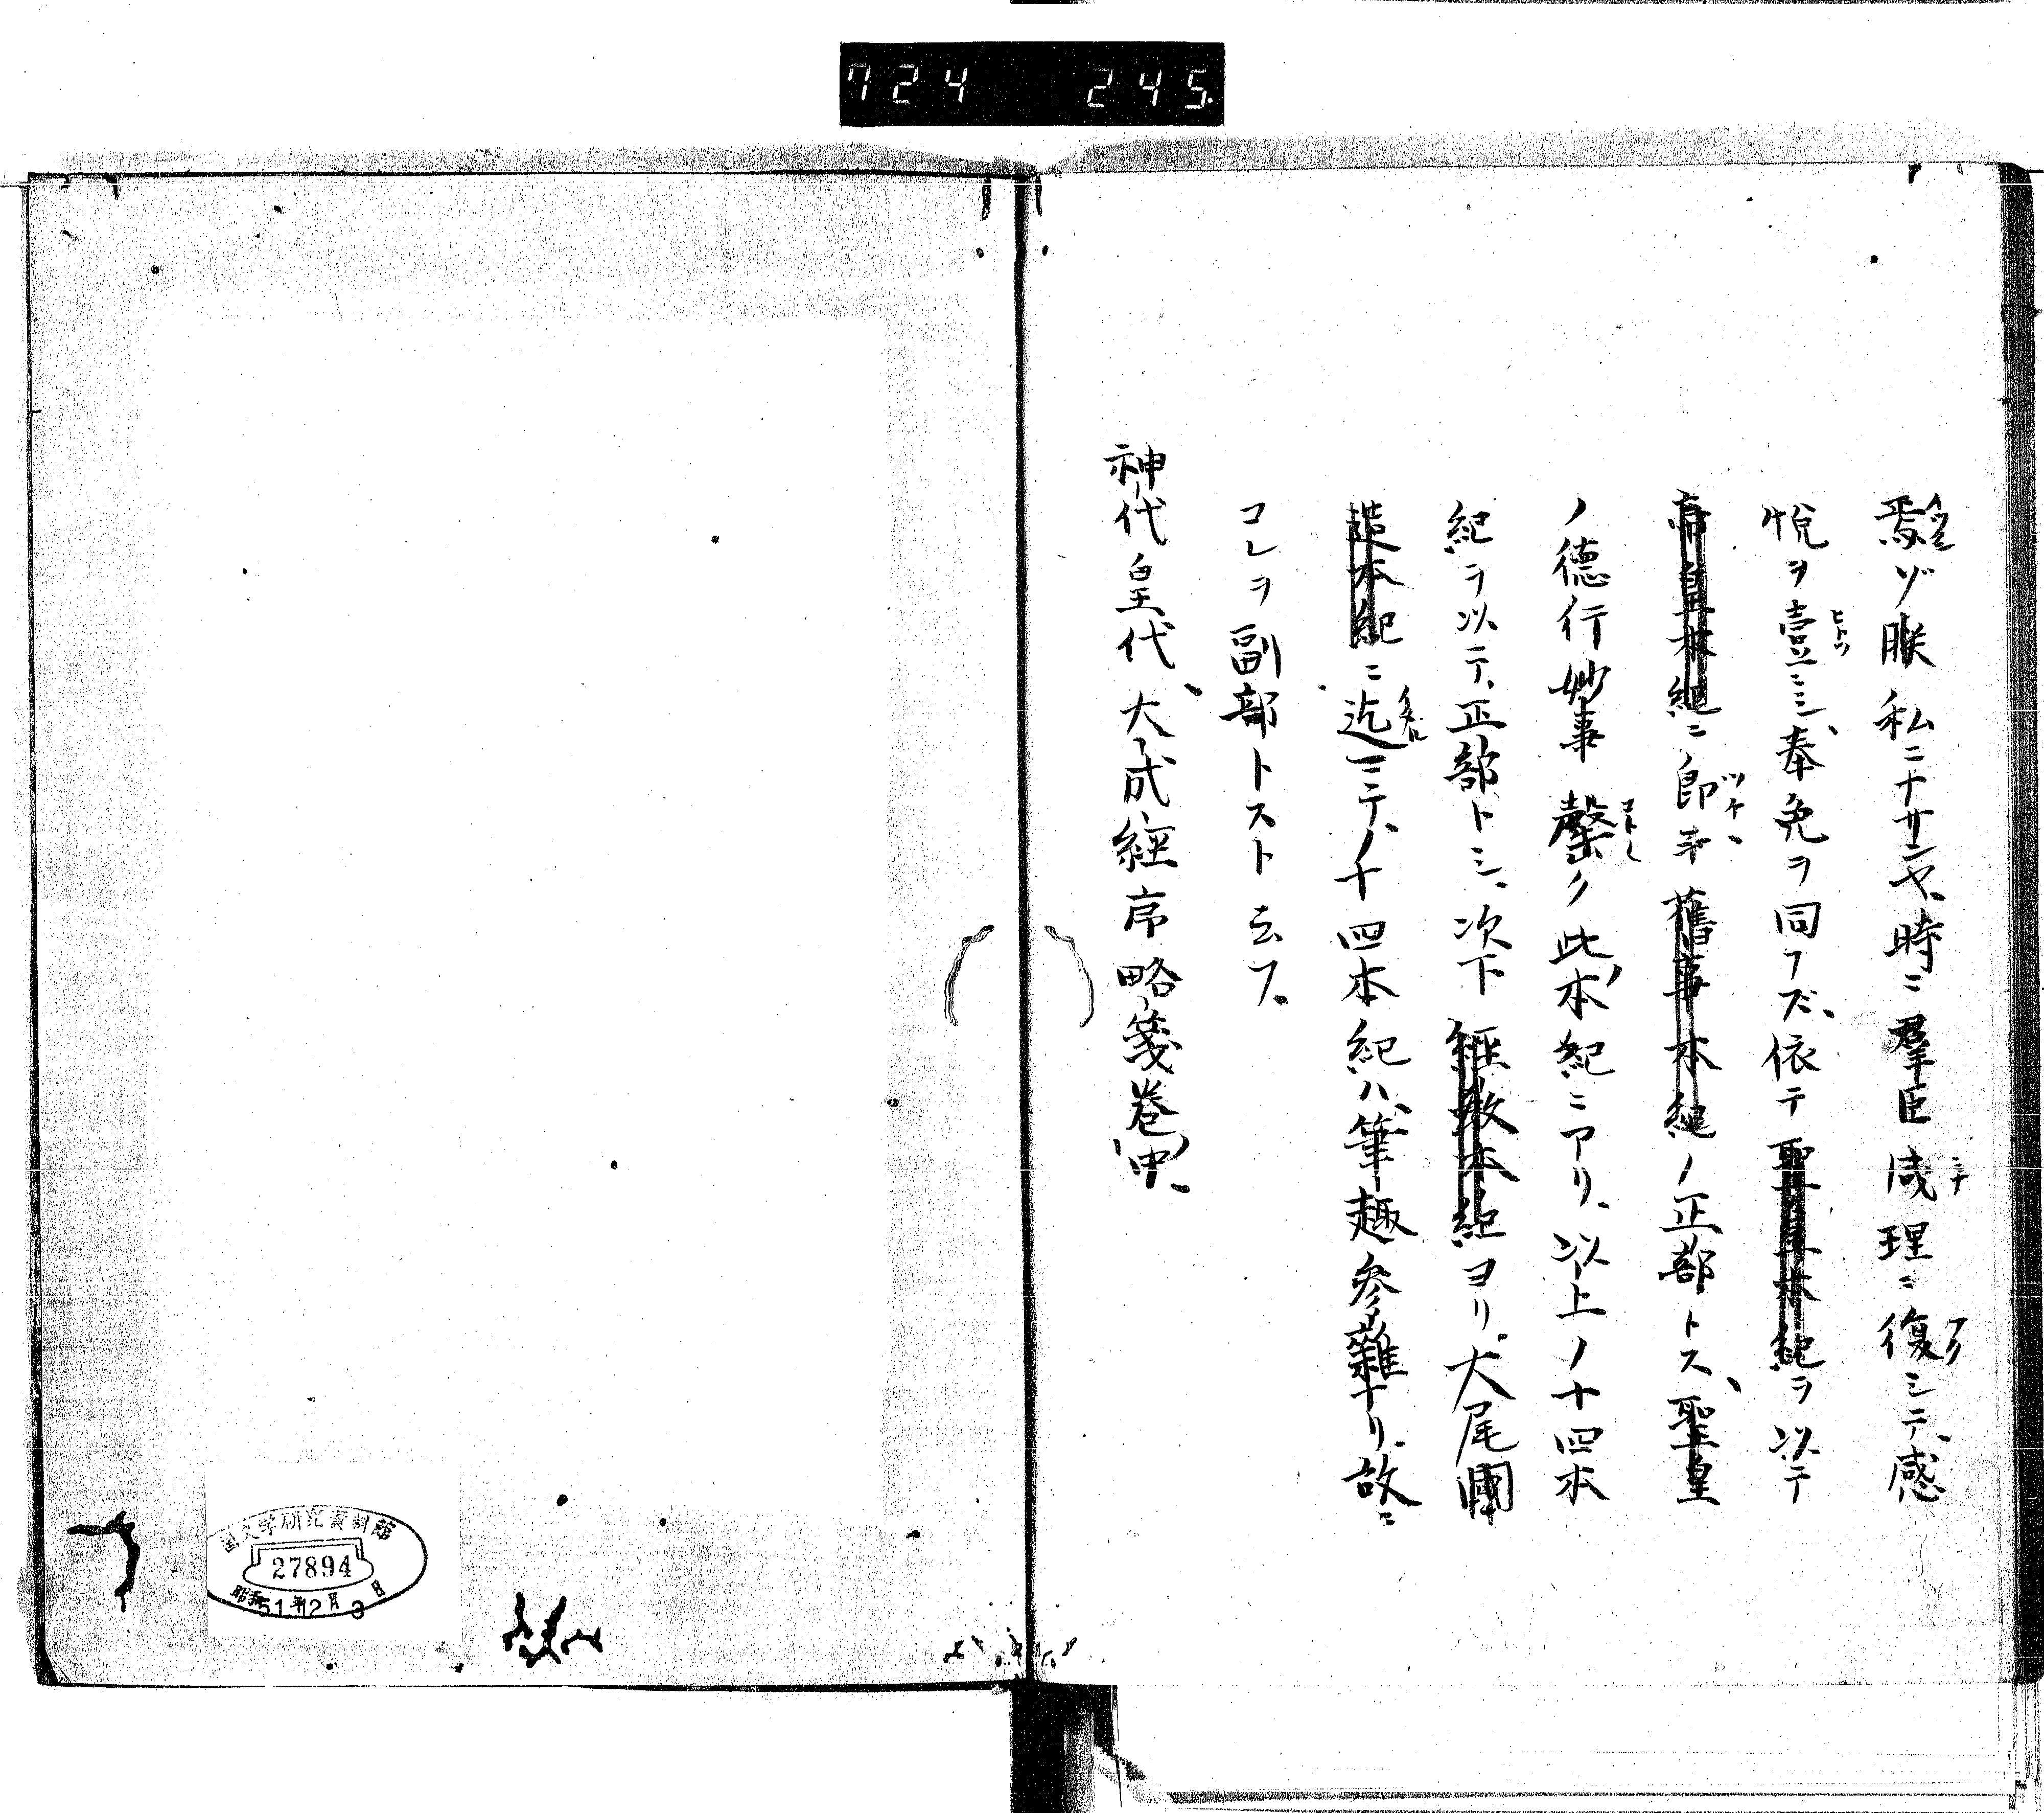 724 245
焉ゾ朕私ニナサンヤ、時ニ羣臣咸理ニ復シテ、感
悦ヲ壹ニシ、奉免ヲ同フズ、依テ聖皇本紀ヲ以テ
帝皇本紀ニ即キ舊事本紀ノ正部トス、聖皇
ノ徳行妙事罄ク此本紀ニアリ、以上ノ十四本
紀ヲ以テ、正部トシ、次下經教本紀ヨリ、大尾國
造本紀ニ迄ニテノ十四本紀ハ、筆趣参雜ナリ、故ニ
コレヲ副部トスト云フ、
神代皇代、大成經序略箋巻中、
国文学研究資料館
27894
昭和51年2月3日